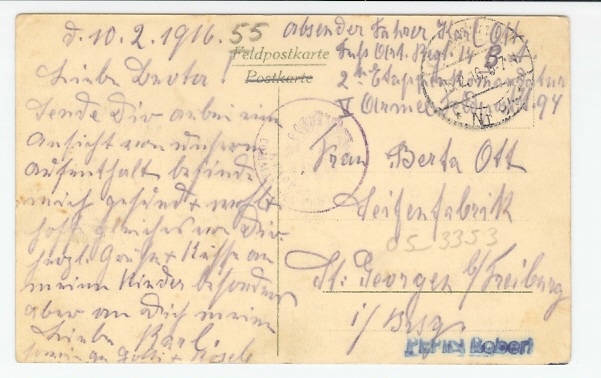 d. 10.2.1916. 55
Feldpostkarte
Postkarte
Liebe Berta
Sende Dir anbei eine
Ansicht von unserm
Aufenthalt befinde
mich gesund & wohl
hoffe gleiches von Dir.
herzl. Grüße & Küsse an
meine Kinder besonders
aber an Dich meine
Liebe Karl.
Absender Fahrer Karl Ott
Fuss Art. Regt. 14
2te Etappen Komandatur
V Armee 94
Frau Berta Ott
Seifenfabrik
OS 3353
St. Georgen b/Freiburg
i/Brsg.
PEPIN Robert